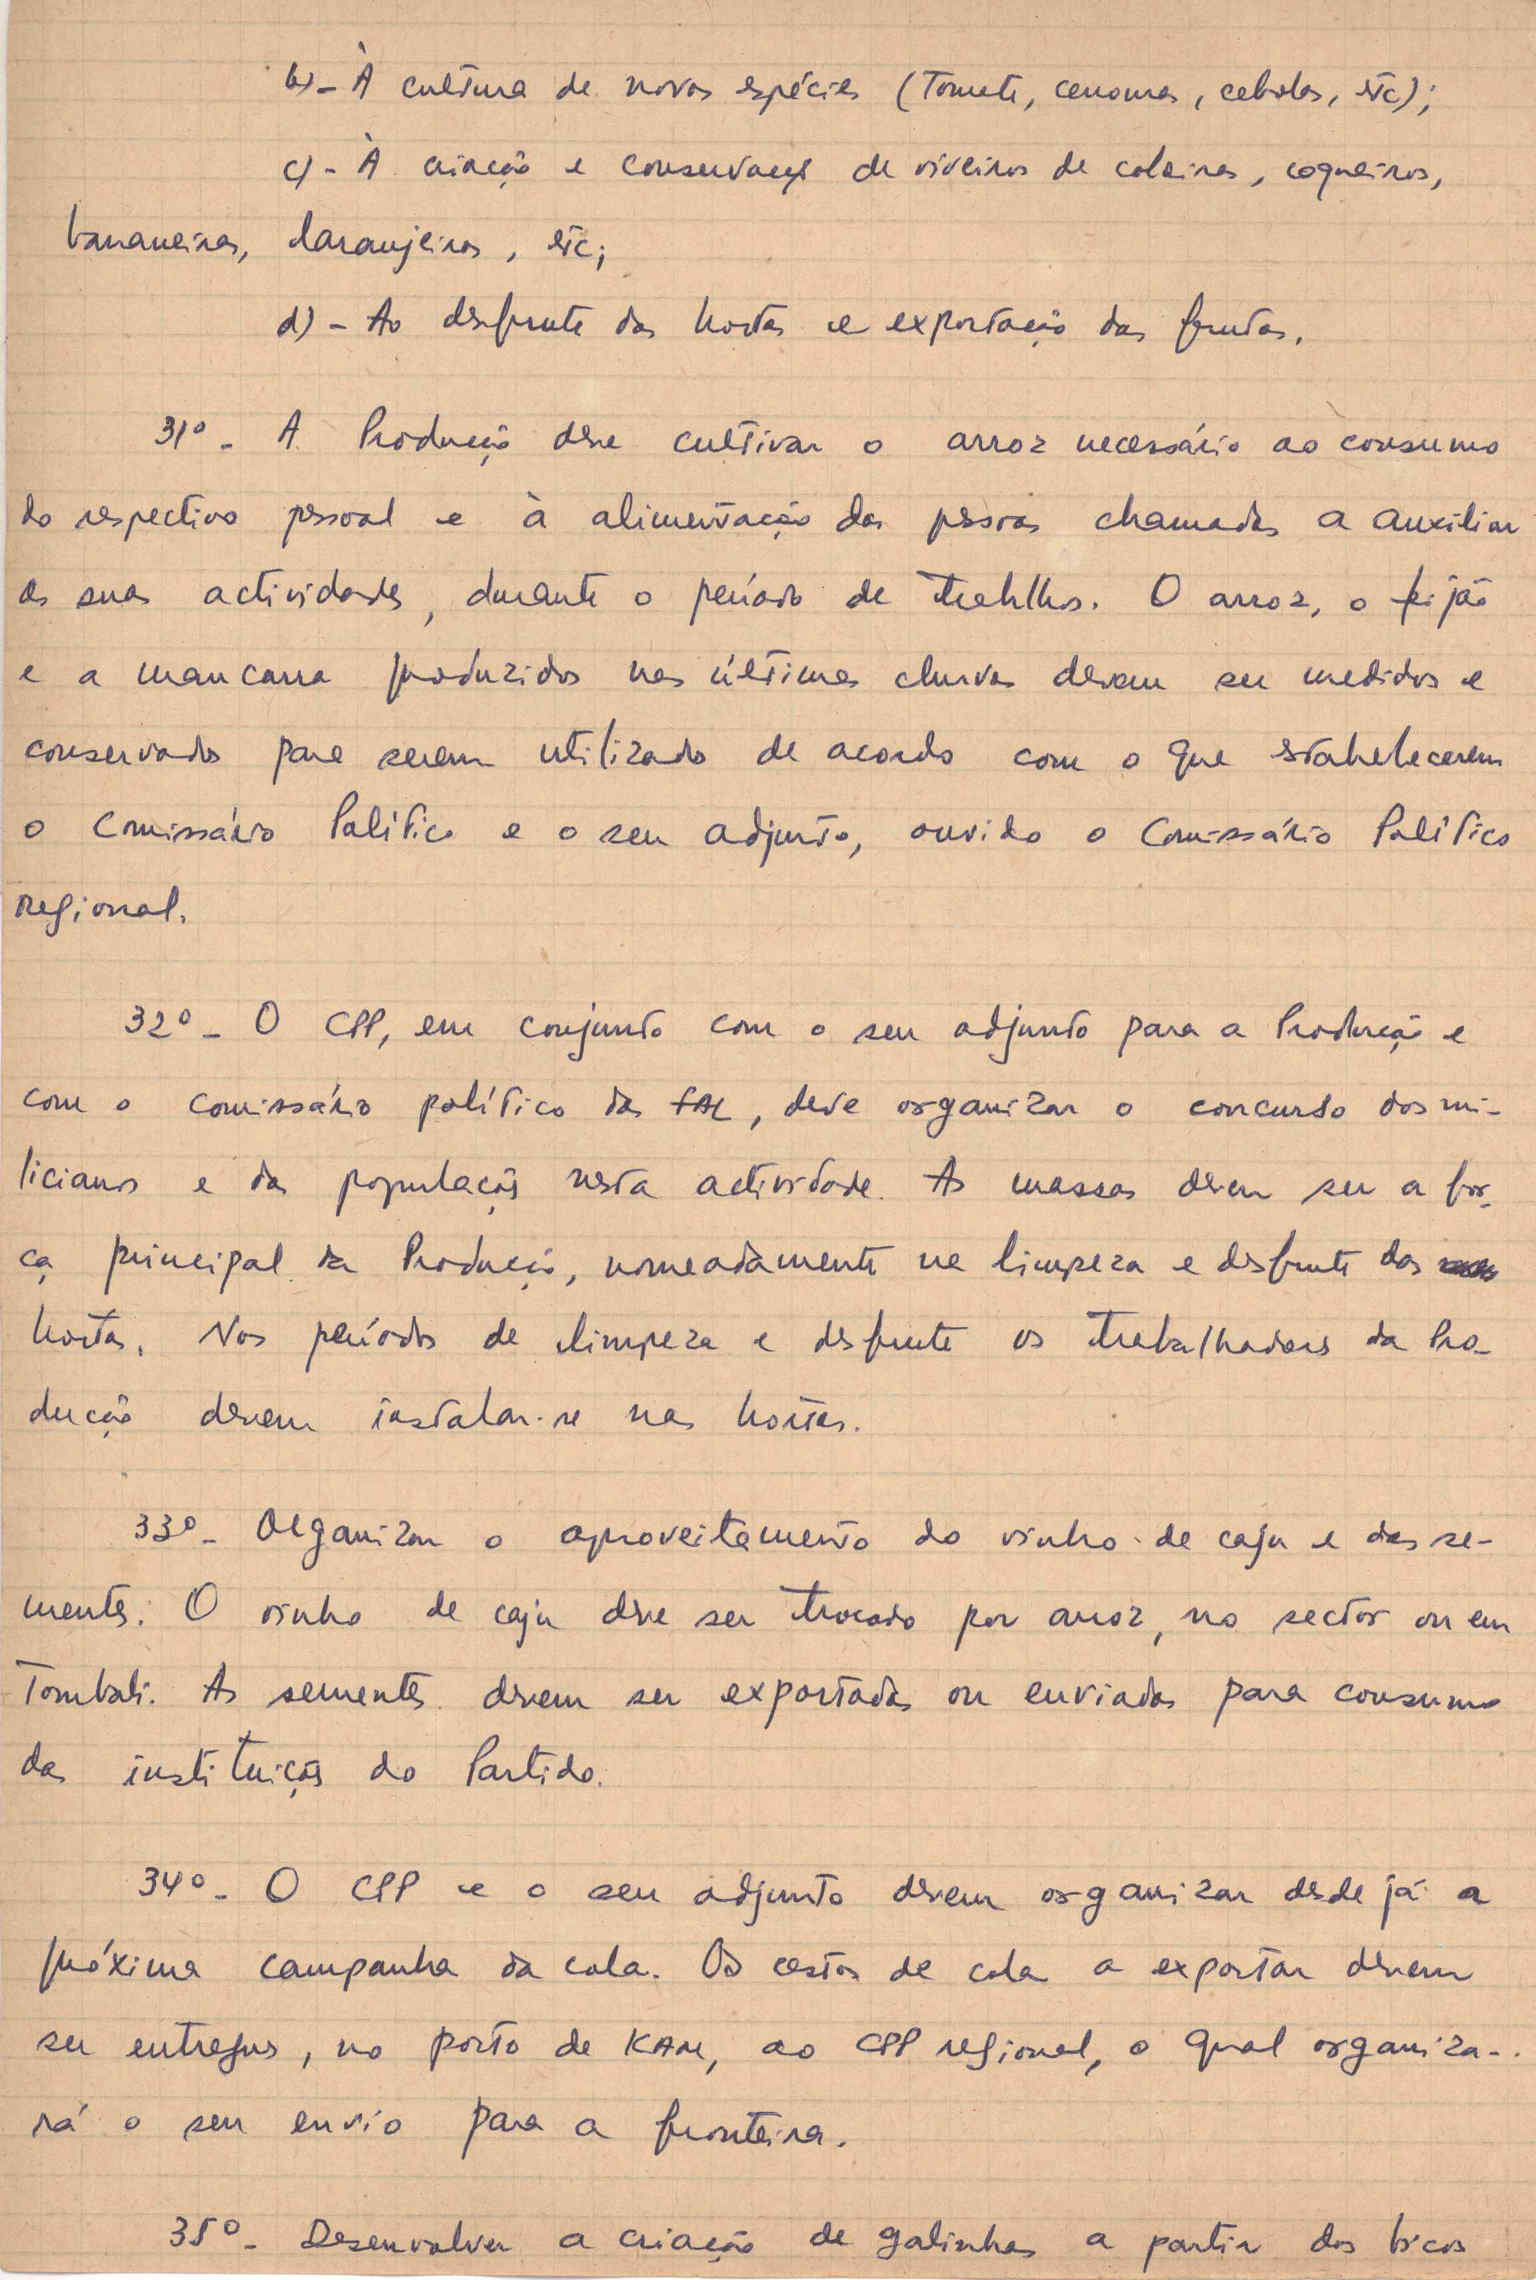 b) - À cultura de novas espécies (Tomate, cenouras, cebolas, etc);
c) - À criação e conservação de viveiros de coleiras, coqueiros,
bananeiras, laranjeiras, etc;
d) - Ao desfrute das hortas e exportação das frutas.
31º - A Produção deve cultivar o arroz necessário ao consumo
do respectivo pessoal e à alimentação das pessoas chamadas a auxiliar
as suas actividades, durante o período de trabalhos. O arroz, o feijão
e a mancarra produzidos nas últimas chuvas devem ser medidos e
conservados para serem utilizados de acordo com o que estabelecerem
o Comissário Político e o seu adjunto, ouvido o Comissário Político
regional.
32º - O CPP, em conjunto com o seu adjunto para a Produção e
com o comissário político das FAL, deve organizar o concurso dos mi-
licianos e da população nesta actividade. As massas devem ser a for-
ça principal da Produção, nomeadamente na limpeza e desfrute das
hortas. Nos períodos de limpeza e desfrute os trabalhadores da Pro-
dução devem instalar-se nas hortas.
33º - Organizar o aproveitamento do vinho de caju e das se-
mentes. O vinho de caju deve ser trocado por arroz, no sector ou em
Tombali. As sementes devem ser exportadas ou enviadas para consumo
das instituições do Partido.
34º - O CPP e o seu adjunto devem organizar desde já a
próxima campanha da cola. Os cestos de cola a exportar devem
ser entregues, no porto de KAM, ao CPP regional, o qual organiza-
rá o seu envio para a fronteira.
35º - Desenvolver a criação de galinhas a partir dos bicos